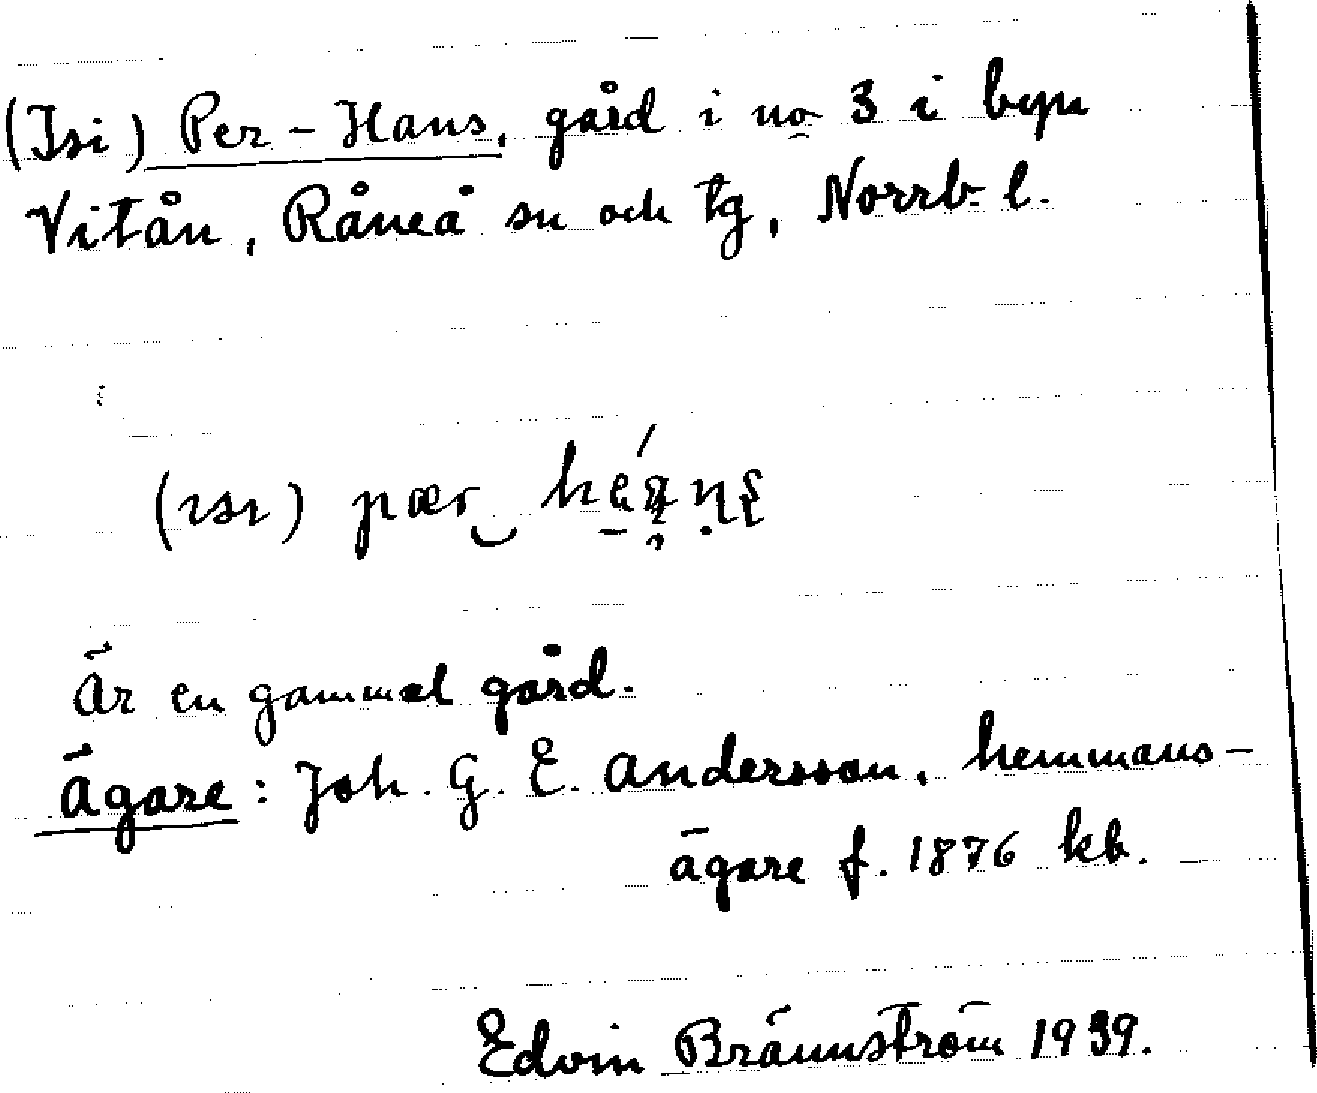 (Isi) Per-Hans, gård i no 3 i byn
Vitån, Råneå sn och tg, Norrb. l.
(ısı) pær
Är en gammal gård.
Ägare: Joh. G. E. Andersson, hemmans-
ägare f. 1876 kb.
Edvin Brännström 1939.